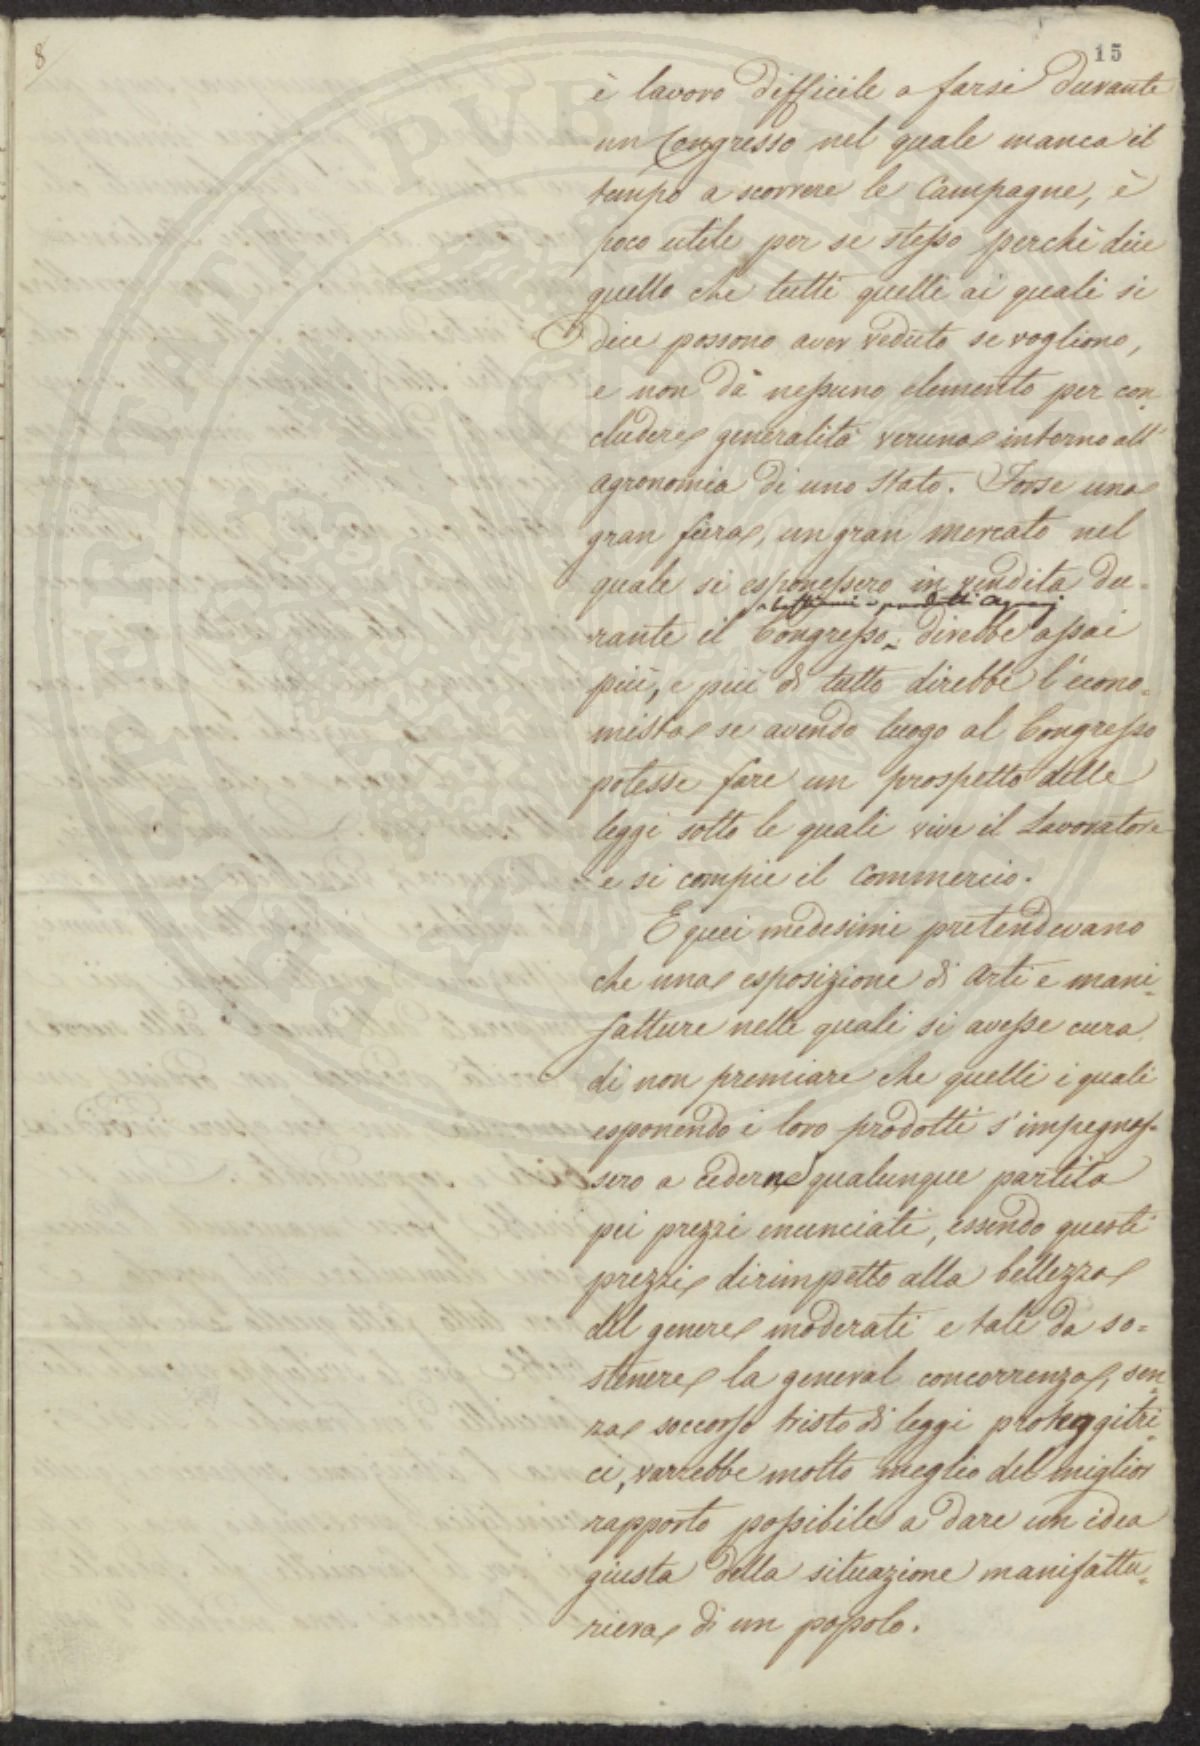 8
15
è lavoro difficile a farsi durante
un Congresso nel quale manca il
tempo a scorrere le Campagne, è
poco utile per se stesso perchè dice
quello che tutti quelli ai quali si
dice possono aver veduto se vogliono,
e non dà nessuno elemento per con-
cludere generalità veruna intorno all'
agronomia di uno Stato. Forse una
gran fiera, un gran mercato nel
quale si esponessero in vendita du-
bestiami e prodotti Agrarj
rante il Congresso direbbe assai
più, e più di tutto direbbe l'econo-
mista se avendo luogo al Congresso
potesse fare un prospetto delle
leggi sotto le quali vive il Lavoratore
e si compie il Commercio.
E quei medesimi pretendevano
che una esposizione di Arti e mani-
fatture nelle quali si avesse cura
di non premiare che quelli i quali
esponendo i loro prodotti s'impegnas-
sero a cederne qualunque partita
pei prezzi enunciati, essendo questi
prezzi dirimpetto alla bellezza
del genere moderati e tali da so-
stenere la general concorrenza, sen-
za soccorso tristo di leggi proteggitri-
ci, varrebbe molto meglio del miglior
rapporto possibile a dare un idea
giusta della situazione manifattu-
riera di un popolo.